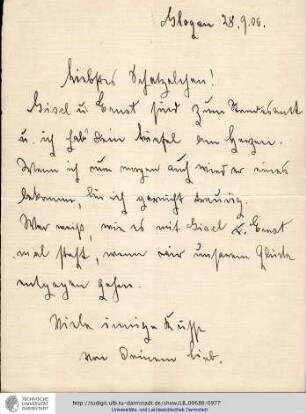 Glogau 28.9.06.
Liebstes Schatzelchen!
Gisel u. Ernst sind zum Standesamt
u. ich hab' Dein Briefel am Herzen.
Wenn ich nun morgen auch wieder eines
bekomme, bin ich garnicht traurig.
Wer weiß, wie es mit Gisel & Ernst
mal steht, wenn wir unserem Glücke
entgegen gehen.
Viele innige Küsse
von Deinem Lieb.
TECHNISCHE
UNIVERSITÄT
DARMSTADT
http://tudigit.ulb.tu-darmstadt.de/show/LB_00686/0977
Universitäts- und Landesbibliothek Darmstadt